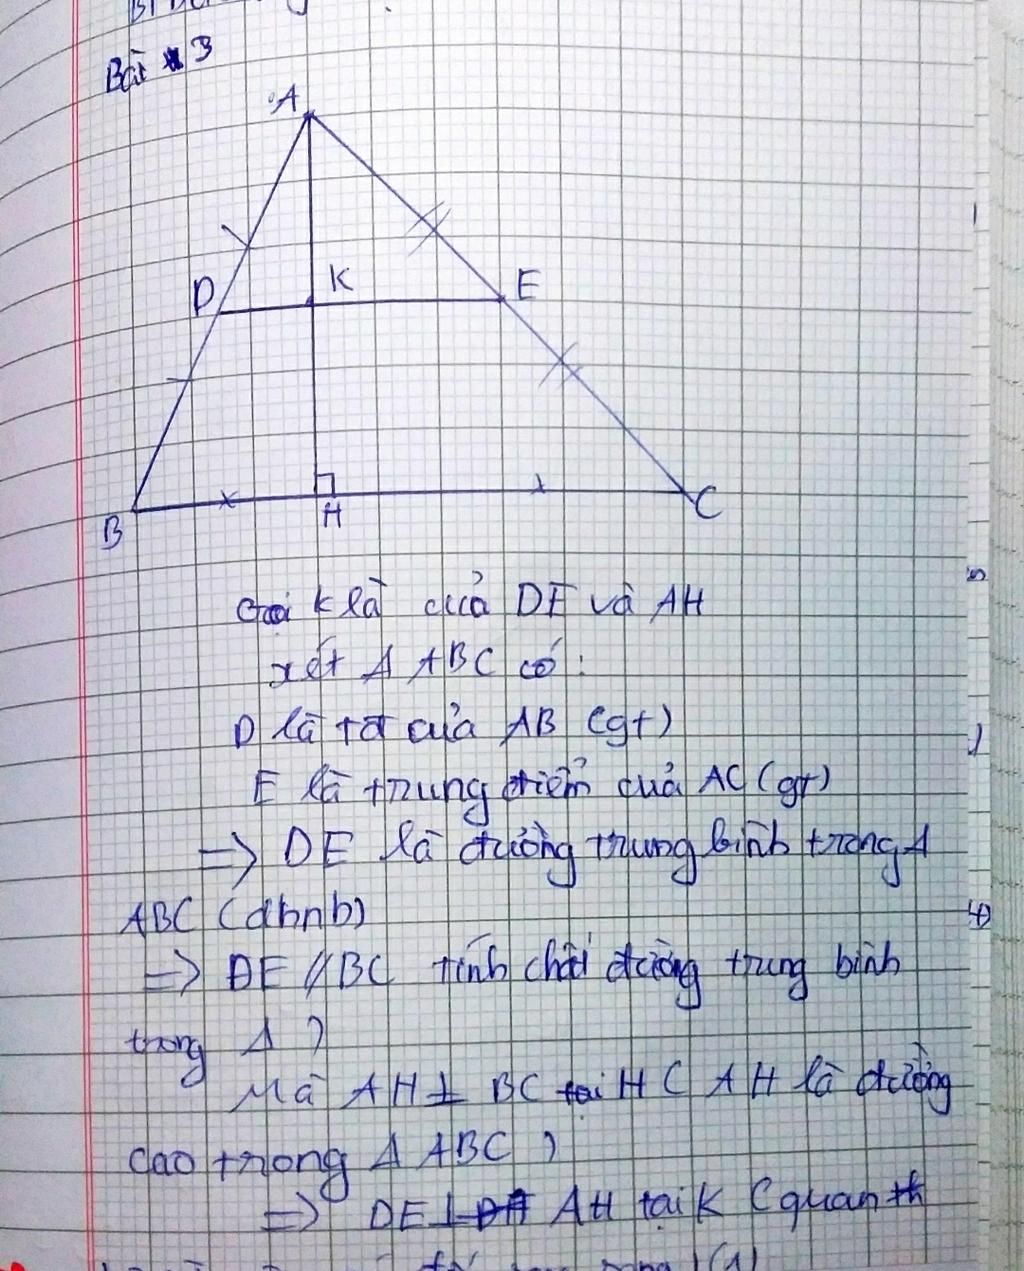 Bài 3
A
D
K
E
B
H
C
Gọi K là của DE và AH
xét Δ ABC có:
D là tđ của AB (gt)
E là trung điểm quả AC (gt)
=> DE là đường trung bình trong Δ
ABC (dhnb)
=> DE // BC tính chất đường trung bình
trong Δ )
Mà AH ⊥ BC tại H ( AH là đường
cao trong Δ ABC )
=> DE ⊥ AH tại K ( quan th